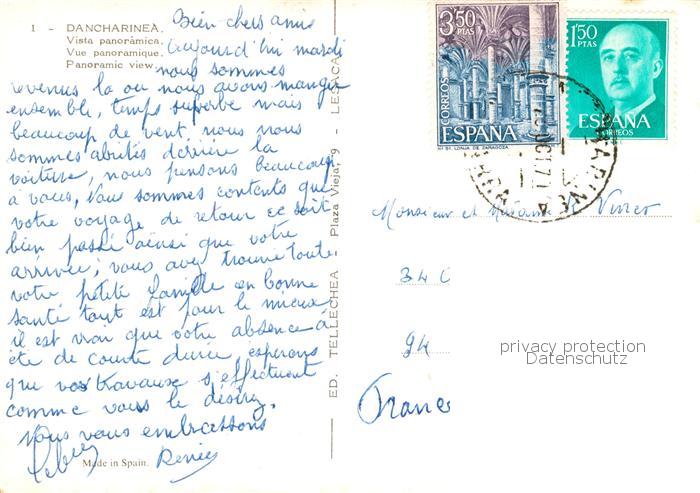 1 - DANCHARINEA.
Vista panorámica.
Vue panoramique.
Panoramic view.
Bien chers amis
Aujourd'hui mardi
nous sommes
revenus la ou nous avons manger
ensemble, temps superbe mais
beaucoup de vent. nous nous
sommes abrités derrière la
voiture, nous pensons beaucoup
a vous, Nous sommes contents que
votre voyage de retour ce soit
bien passé ainsi que votre
arrivée; vous avez trouvé toute
votre petite famille en bonne
santé tout est pour le mieux
il est vrai que votre absence a
ete de courte duree, esperons
que vos travause s'effectuent
comme vous le désirez.
Nous vous embrassons
Renée
Made in Spain.
ED. TELLECHEA - Plaza Vieja, 9 - LESACA
3'50
PTAS
CORREOS
ESPAÑA
LONJA DE ZARAGOZA
1'50
PTAS
ESPAÑA
CORREOS
Monsieur et Madame
34 C
94
France
privacy protection
Datenschutz